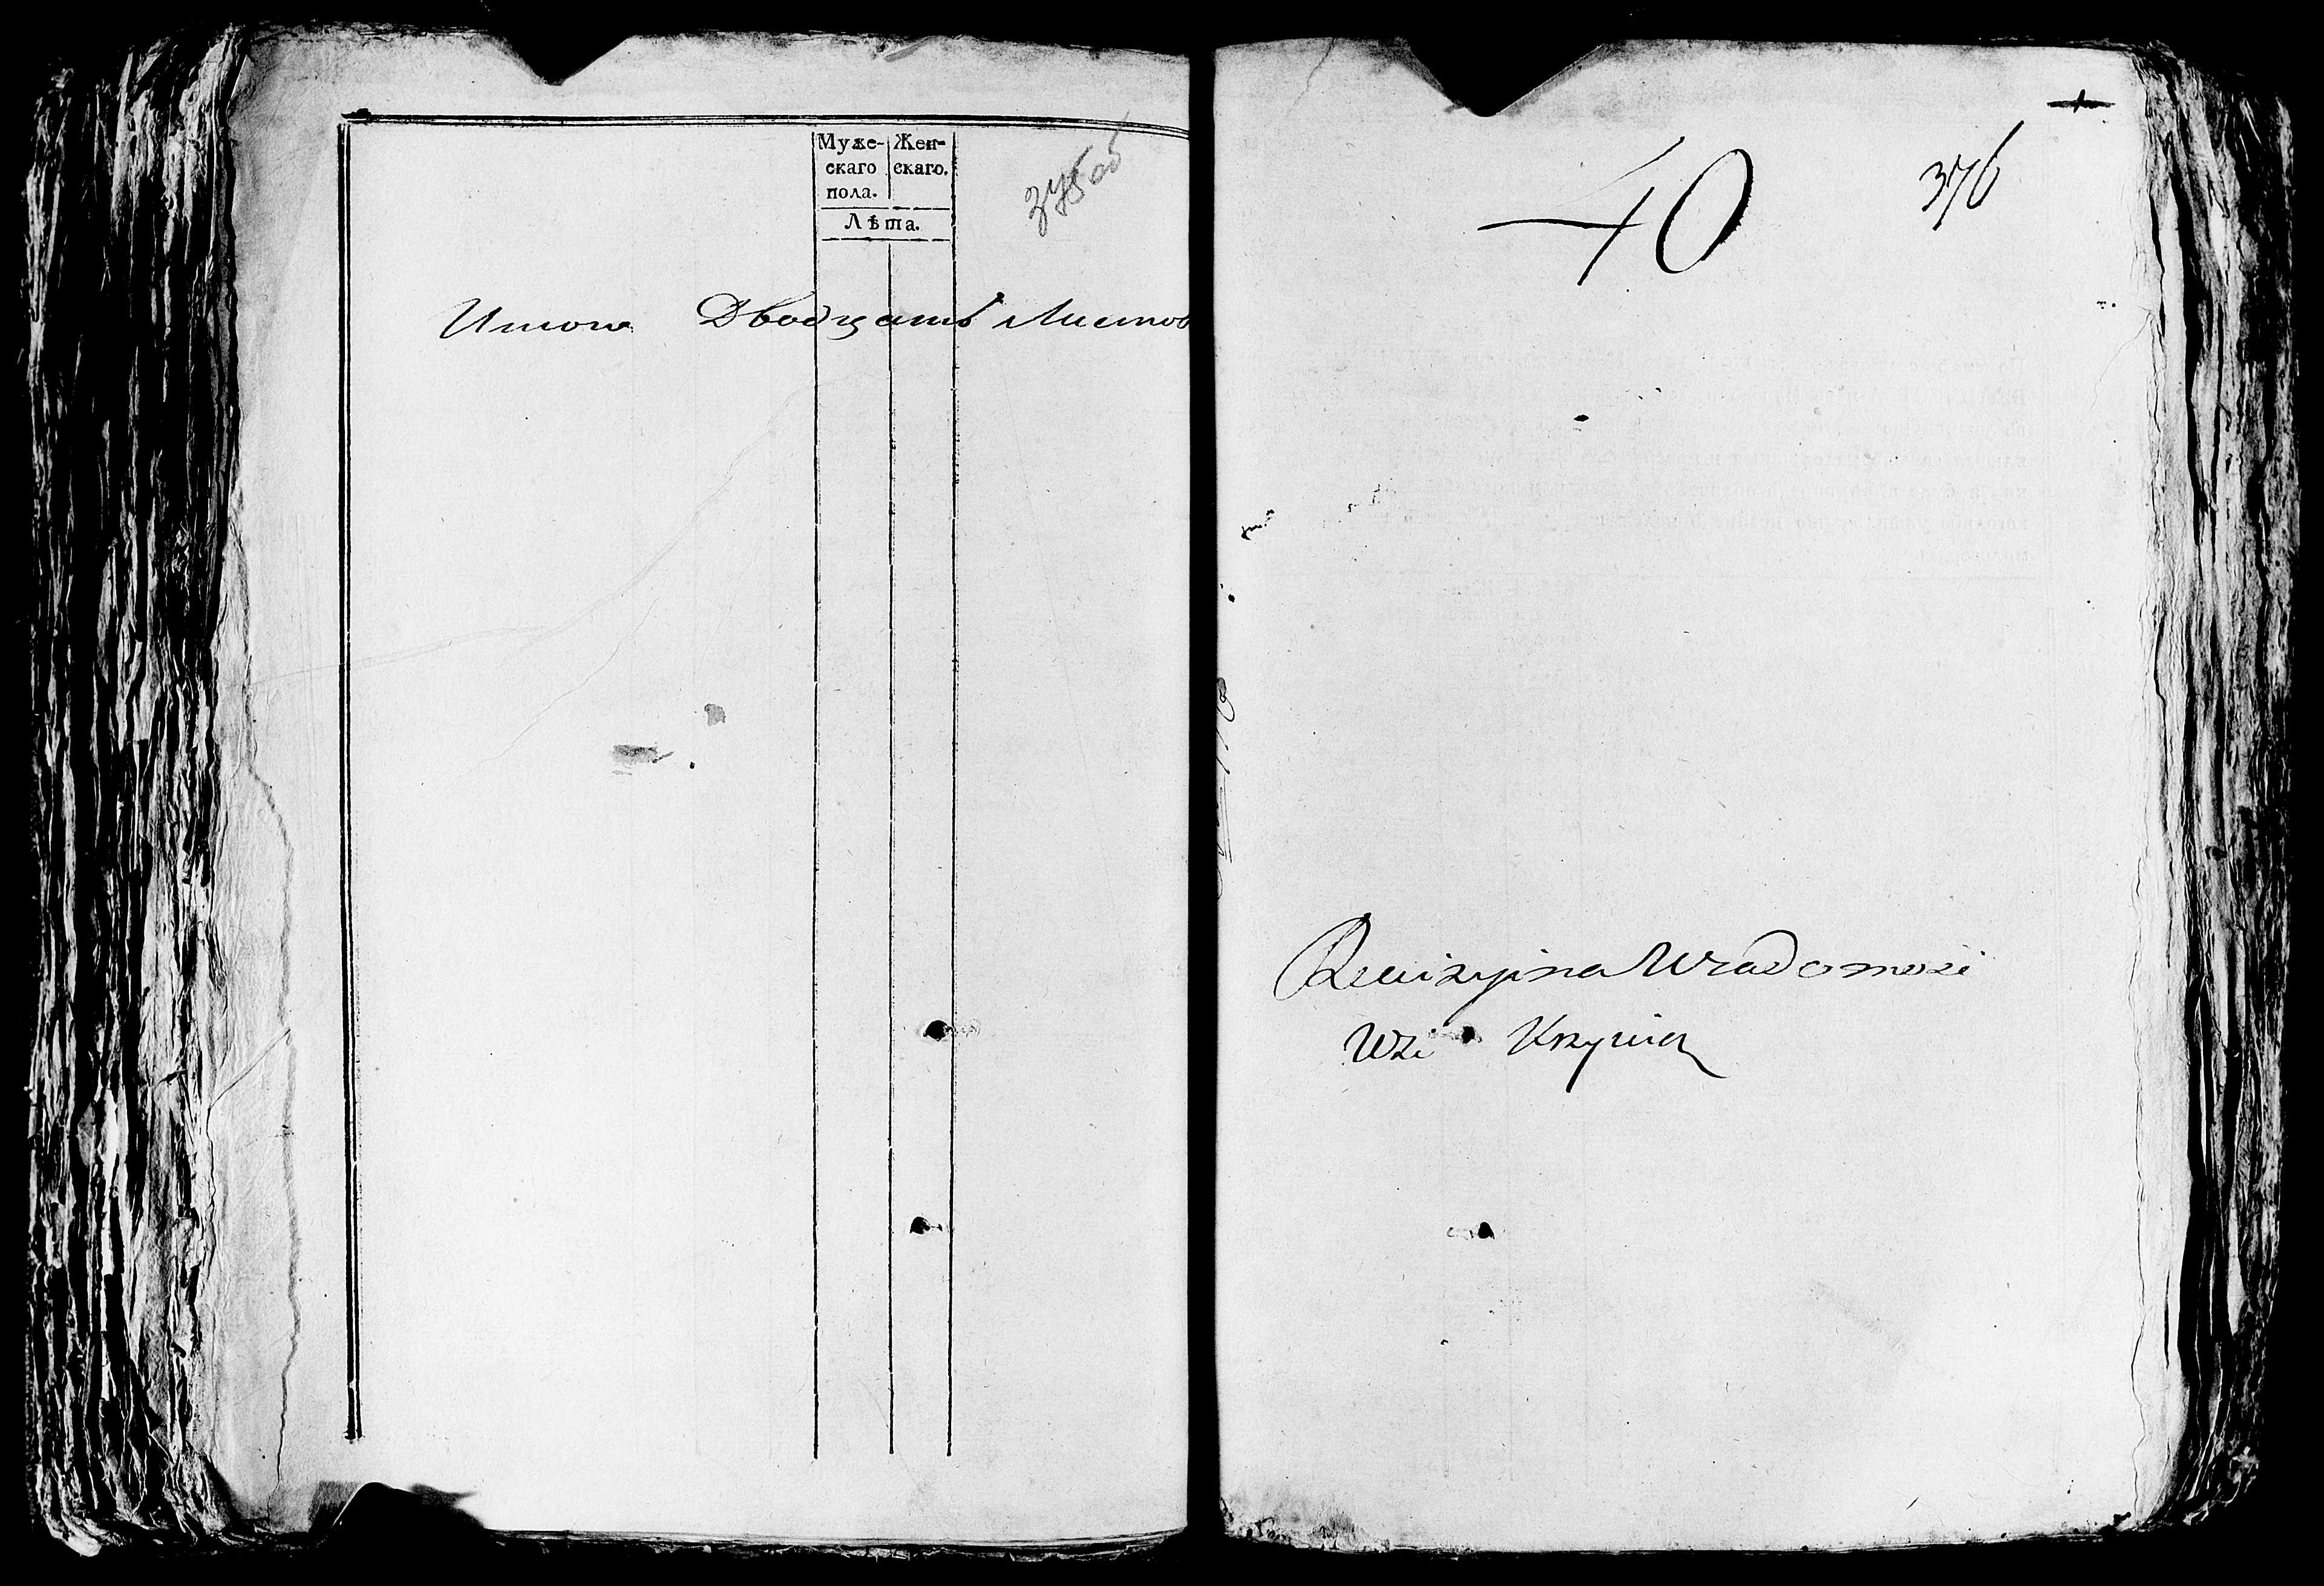 Муже-
скаго
пола.
Жен-
скаго.
Лѣта.
375 об
Итого Двадцать Листов
40
376
Rewizyjna Wiadomosci
Wsi